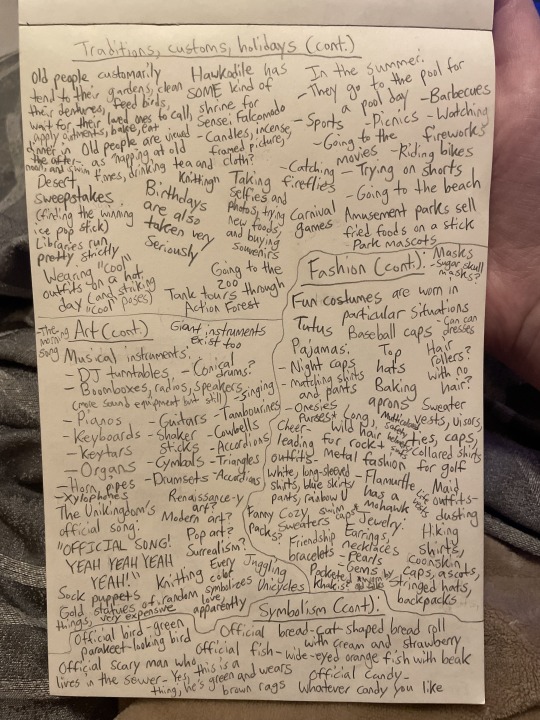 Traditions, customs, holidays (cont.)
Old people customarily
tend to their gardens, clean
their dentures, feed birds,
wait for their loved ones to call,
apply ointments, bake, eat
dinner in the afternoon, and swim
Old people are viewed
as "napping at old
times, drinking tea and
Knitting"
Hawkodile has
SOME kind of
shrine for
Sensei Falcomodo
- Candles, incense,
framed picture,
cloth?
In the summer:
- They go to the pool for
a pool day
- Barbecues
- Sports
- Picnics
- Watching
fireworks
- Going to the
movies
- Riding bikes
- Catching
fireflies
- Trying on shorts
- Going to the beach
Carnival
games
Amusement parks sell
fried foods on a stick
Park mascots
Desert
sweepstakes
(finding the winning
ice pop stick)
Libraries run
pretty strictly
Birthdays
are also
taken very
seriously
Taking
selfies and
photos, trying
new foods,
and buying
souvenirs
Wearing "cool"
outfits on a hot
day (and striking
"cool" poses)
Going to the
zoo
Tank tours through
Action Forest
Fashion (cont.):
Masks
- Sugar skull
masks?
Fun costumes are worn in
particular situations
Tutus
Baseball caps
- Can can
dresses
Pajamas:
- Night caps
- matching shirts
and pants
- Onesies
Top
hats
Hair
rollers?
with no
hair?
Baking
aprons
Sweater
vests, visors,
ties, caps,
collared shirts
for golf
Purses
Cheer-
leading
outfits-
white, long-sleeved
shirts, blue skirts/
pants, rainbow U
Long,
wild hair
for rock +
metal fashion
- Flamurtle
has a
mohawk
Maid
outfits-
dusting
Fanny
packs?
Cozy
Sweaters
swim
caps
Jewelry:
Earrings,
necklaces
- Pearls
- Gems
Friendship
bracelets
Hiking
Shirts,
coonskin
caps, ascots,
stringed hats,
backpacks
Packeted
khakis?
Art (cont.)
- The
morning
song
Giant instruments
exist too
Musical instruments:
- DJ turntables
- Conical
drums?
- Boomboxes, radios, speakers
(more sound equipment but still)
- Singing
- Pianos
- Guitars
- Tambourines
- Keyboards
- Shaker
sticks
- Cowbells
- Keytars
- Accordions
- Organs
- Cymbals
- Triangles
- Horn, pipes
- Drumsets
- Accordias
- Xylophones
The Unikingdom's
official song:
"OFFICIAL SONG!
YEAH YEAH YEAH
YEAH!"
Renaissance-y
art?
Modern art?
Pop art?
Surrealism?
Sock puppets
Knitting
Every
color
symbolizes
love,
apparently
Juggling
Unicycles
Gold statues of random
things, very expensive
Symbolism (cont.):
Official bird- green
parakeet-looking bird
Official bread- cat-shaped bread roll
with cream and strawberry
Official fish- wide-eyed orange fish with beak
Official scary man who
lives in the sewer- Yes, this is a
thing, he's green and wears
brown rags
Official Candy-
Whatever candy you like